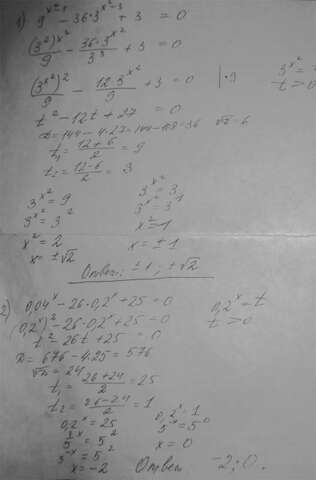 1) 9^{x²-1} - 36·3^{x²-3} + 3 = 0
(3²)^{x²}/9 - 36·3^{x²}/3³ + 3 = 0
(3^{x²})²/9 - 12·3^{x²}/9 + 3 = 0 | ·9 3^{x²} = t
t > 0
t² - 12t + 27 = 0
D = 144 - 4·27 = 144 - 108 = 36 √D = 6
t₁ = (12+6)/2 = 9
t₂ = (12-6)/2 = 3
3^{x²} = 9 3^{x²} = 3
3^{x²} = 3² 3^{x²} = 3¹
x² = 2 x² = 1
x = ±√2 x = ±1
Ответ: ±1; ±√2
2) 0,04^x - 26·0,2^x + 25 = 0 0,2^x = t
(0,2^x)² - 26·0,2^x + 25 = 0 t > 0
t² - 26t + 25 = 0
D = 676 - 4·25 = 576
√D = 24
t₁ = (26+24)/2 = 25
t₂ = (26-24)/2 = 1
0,2^x = 25 0,2^x = 1
5^{-x} = 5² 5^{-x} = 5⁰
5^{-x} = 5² x = 0
x = -2 Ответ -2; 0.